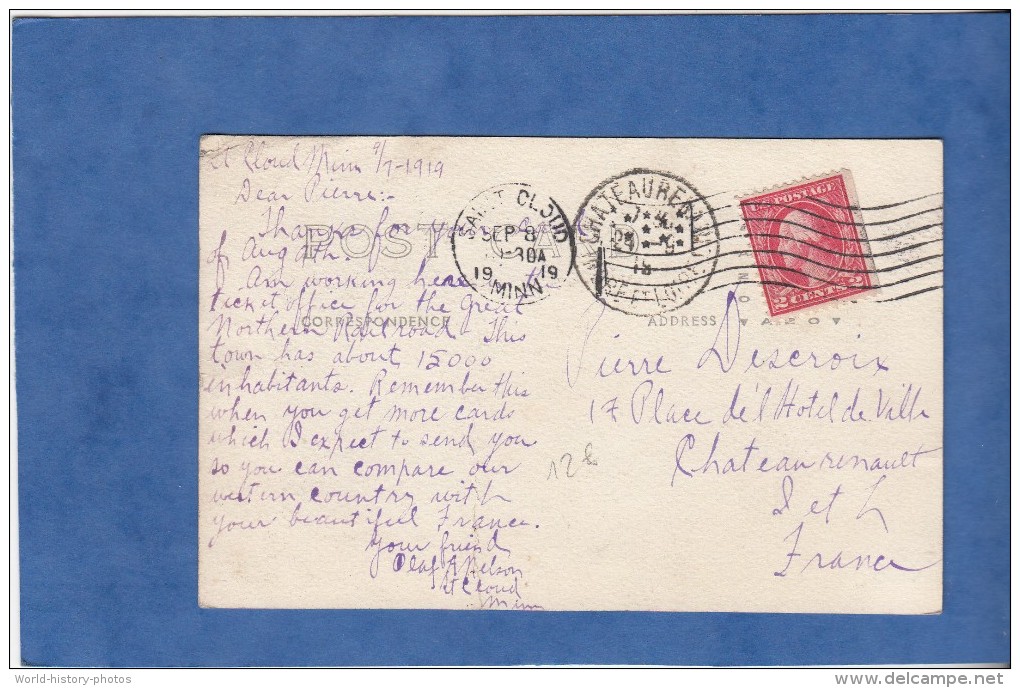 St Cloud Minn 9/7-1919
Dear Pierre:-
Thanks for your card
of Aug 2th.
Am working here in the
ticket office for the Great
Northern Railroad. This
town has about 15000
inhabitants. Remember this
when you get more cards
which I expect to send you
so you can compare our
western country with
your beautiful France.
Your friend
Olaf A Nelson
St Cloud
Minn
POST CA
CORRESPONDENCE
ADDRESS
SAINT CLOUD
SEP 8
30A
19 19
MINN
CHATEAURENAULT
INDRE ET LOIRE
U.S. POSTAGE
2 CENTS 2
A Z O
Pierre Descroix
17 Place de l'Hotel de Ville
Chateaurenault
I et L
France
12€
World-history-photos
delcampe.net